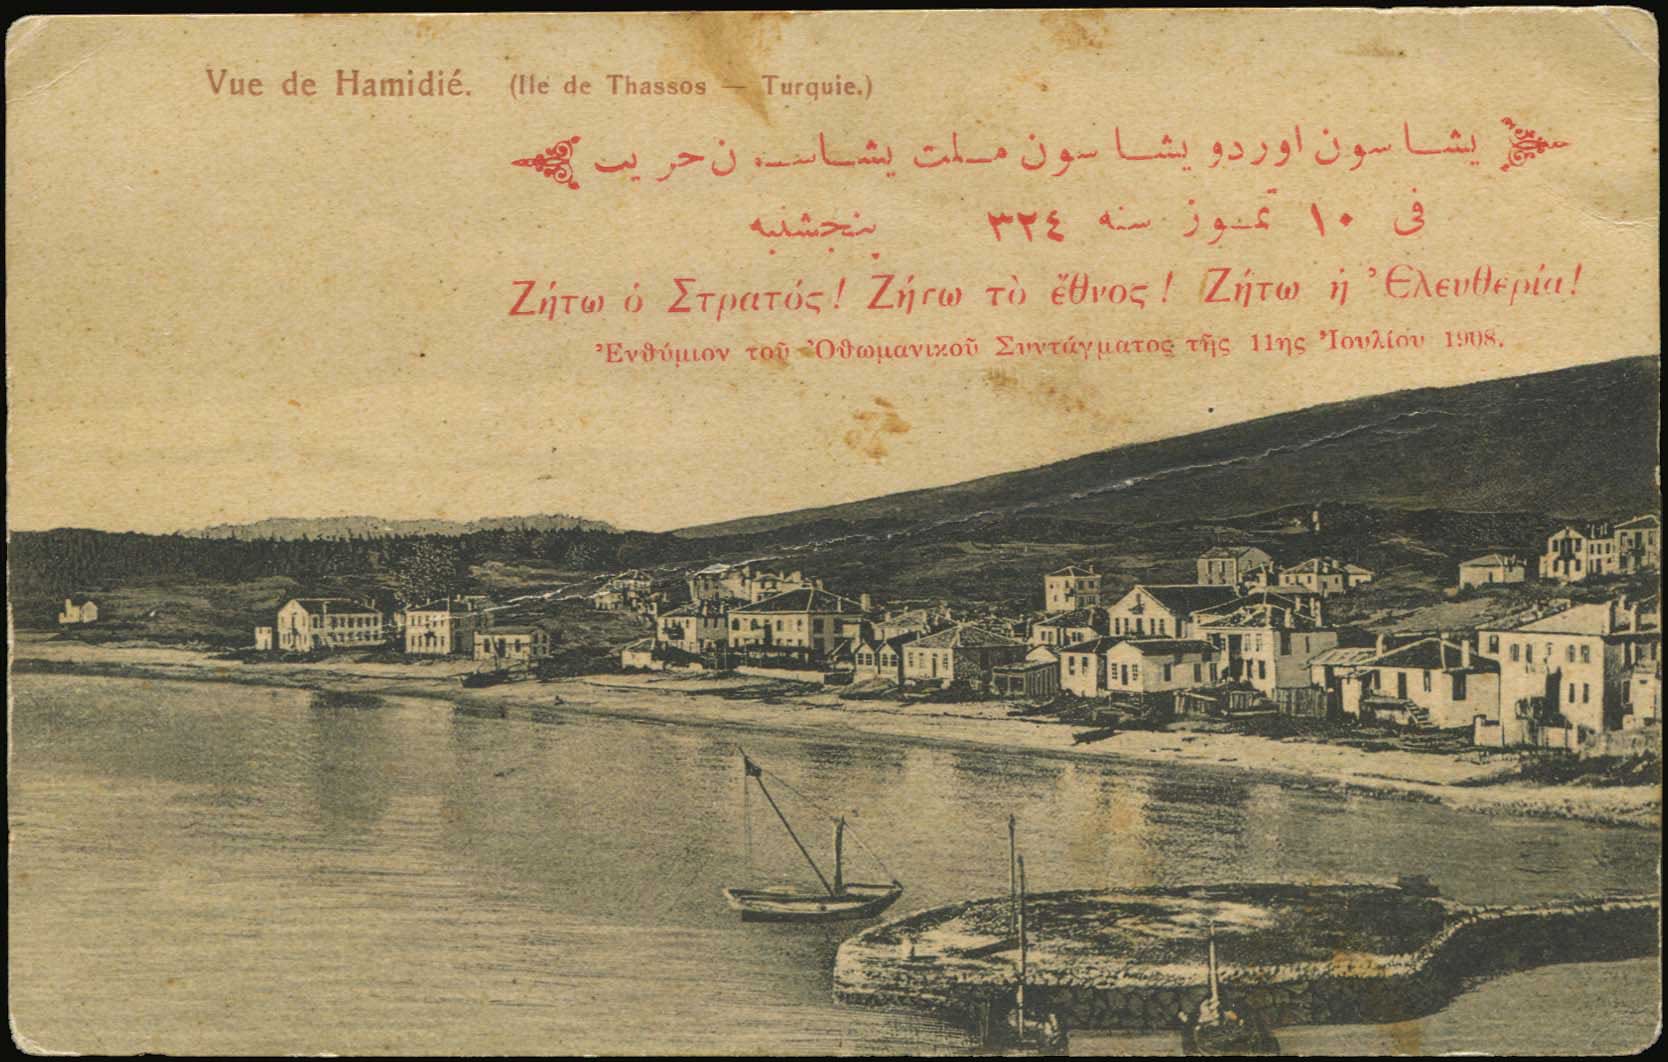 Vue de Hamidié. (Ile de Thassos — Turquie.)
يشاسون اوردو يشاسون ملت يشاسون حريت
فى ١٠ تموز سنه ٣٢٤ پنجشنبه
Ζήτω ὁ Στρατός! Ζήτω τὸ ἔθνος! Ζήτω ἡ Ἐλευθερία!
Ἐνθύμιον τοῦ Ὀθωμανικοῦ Συντάγματος τῆς 11ης Ἰουλίου 1908.